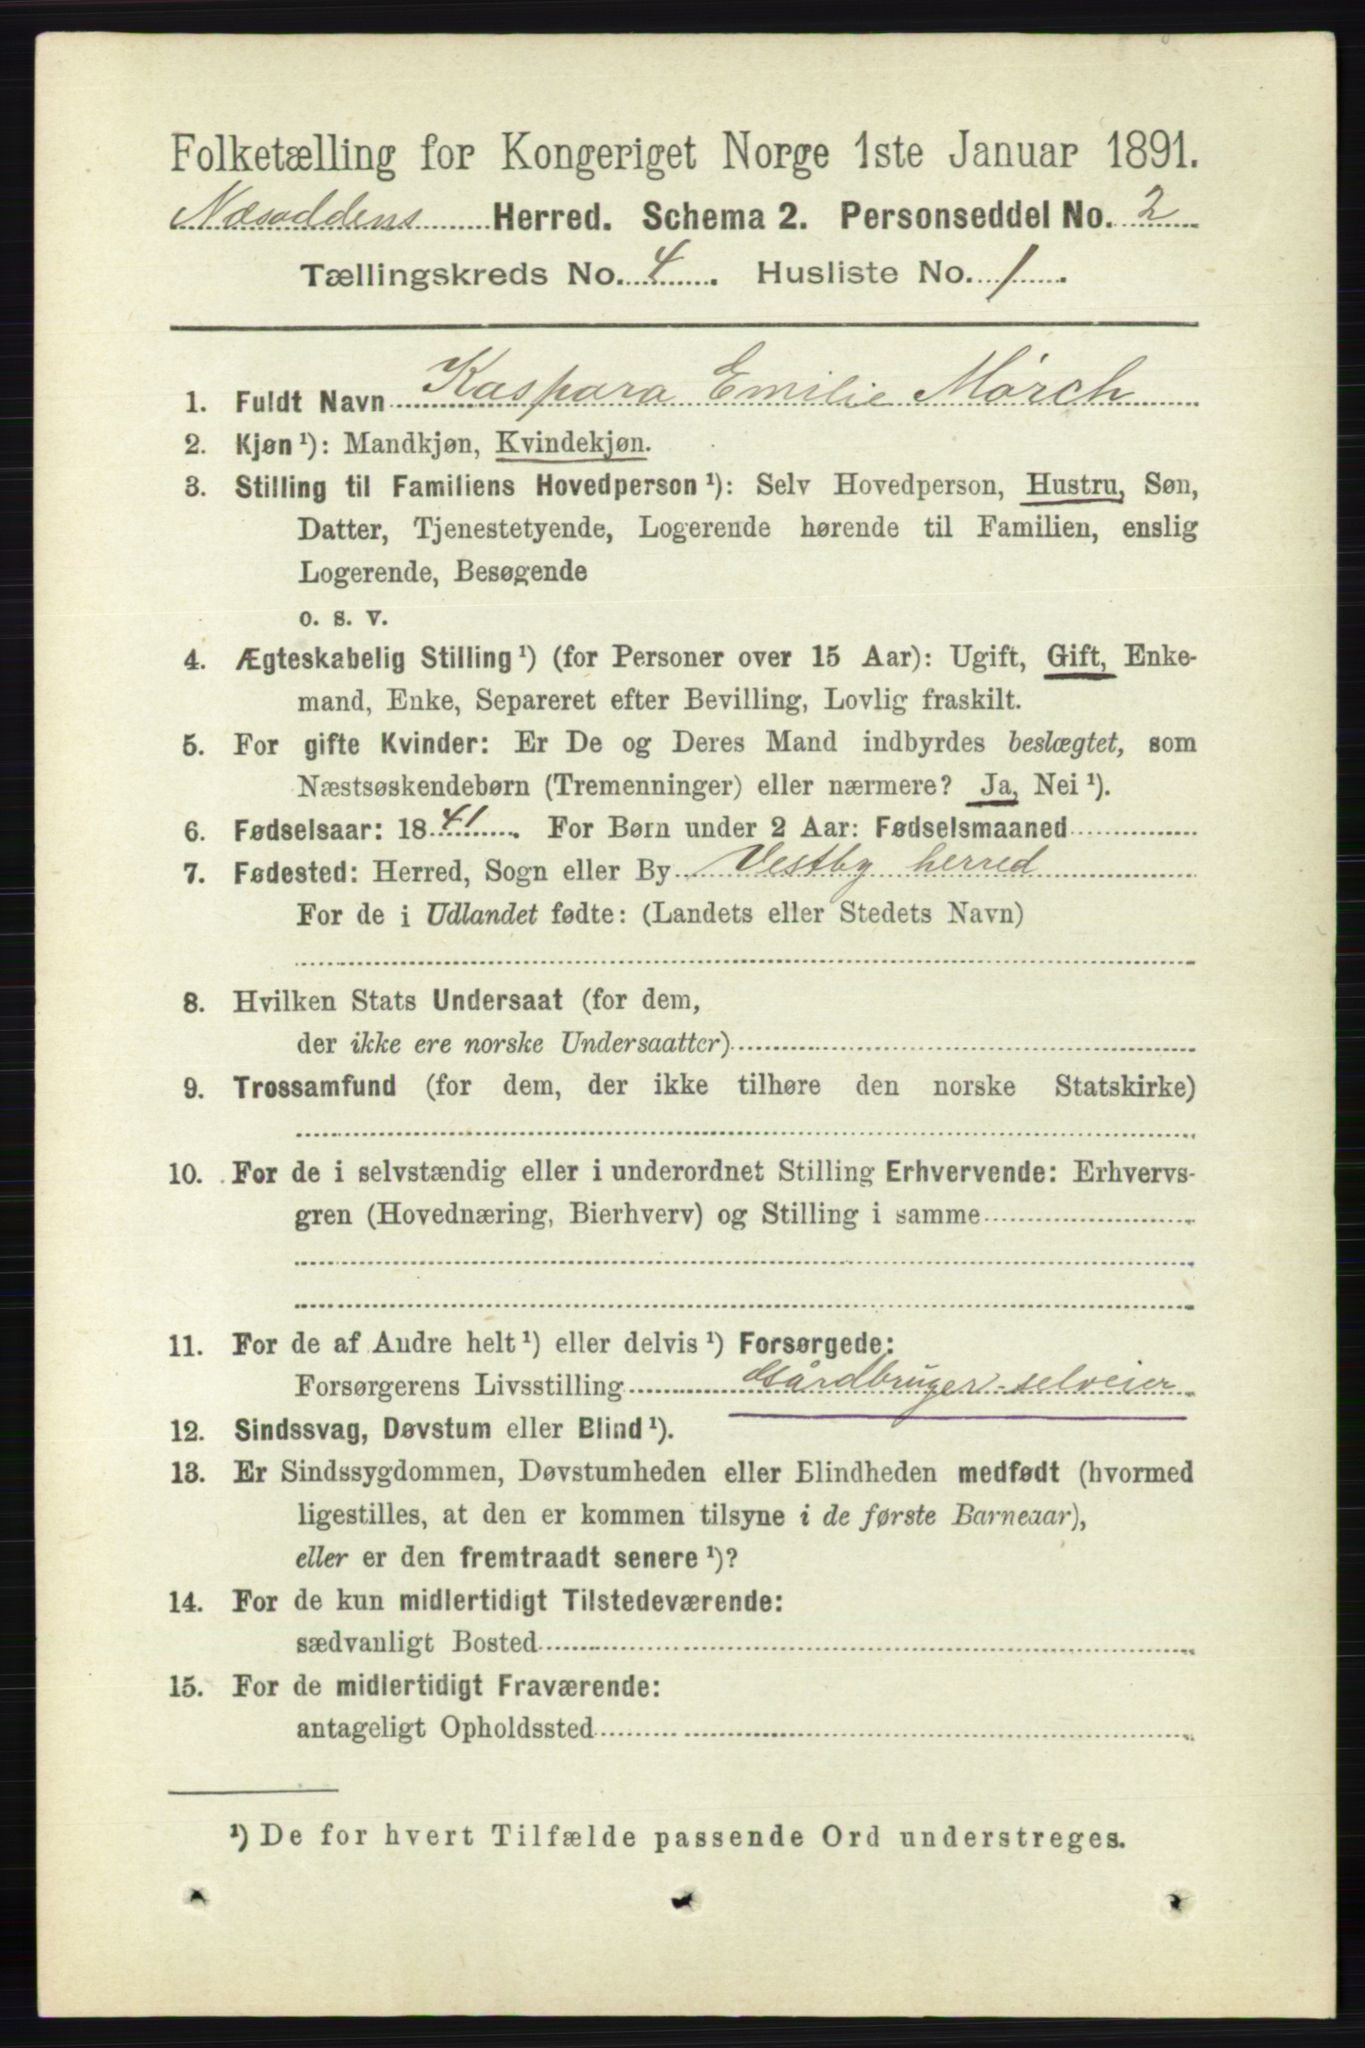 Folketælling for Kongeriget Norge 1ste Januar 1891.
Næsoddens Herred. Schema 2. Personseddel No. 2
Tællingskreds No. 4. Husliste No. 1.
1. Fuldt Navn Kaspara Emilie Mörch
2. Kjøn ¹): Mandkjøn, Kvindekjøn.
3. Stilling til Familiens Hovedperson ¹): Selv Hovedperson, Hustru, Søn,
Datter, Tjenestetyende, Logerende hørende til Familien, enslig
Logerende, Besøgende
o. s. v.
4. Ægteskabelig Stilling ¹) (for Personer over 15 Aar): Ugift, Gift, Enke-
mand, Enke, Separeret efter Bevilling, Lovlig fraskilt.
5. For gifte Kvinder: Er De og Deres Mand indbyrdes beslægtet, som
Næstsøskendebørn (Tremenninger) eller nærmere? Ja, Nei ¹).
6. Fødselsaar: 1841. For Børn under 2 Aar: Fødselsmaaned
7. Fødested: Herred, Sogn eller By Vestby herred
For de i Udlandet fødte: (Landets eller Stedets Navn)
8. Hvilken Stats Undersaat (for dem,
der ikke ere norske Undersaatter)
9. Trossamfund (for dem, der ikke tilhøre den norske Statskirke)
10. For de i selvstændig eller i underordnet Stilling Erhvervende: Erhvervs-
gren (Hovednæring, Bierhverv) og Stilling i samme
11. For de af Andre helt ¹) eller delvis ¹) Forsørgede:
Forsørgerens Livsstilling Gårdbruger-selveier
12. Sindssvag, Døvstum eller Blind ¹).
13. Er Sindssygdommen, Døvstumheden eller Blindheden medfødt (hvormed
ligestilles, at den er kommen tilsyne i de første Barneaar),
eller er den fremtraadt senere ¹)?
14. For de kun midlertidigt Tilstedeværende:
sædvanligt Bosted
15. For de midlertidigt Fraværende:
antageligt Opholdssted
¹) De for hvert Tilfælde passende Ord understreges.